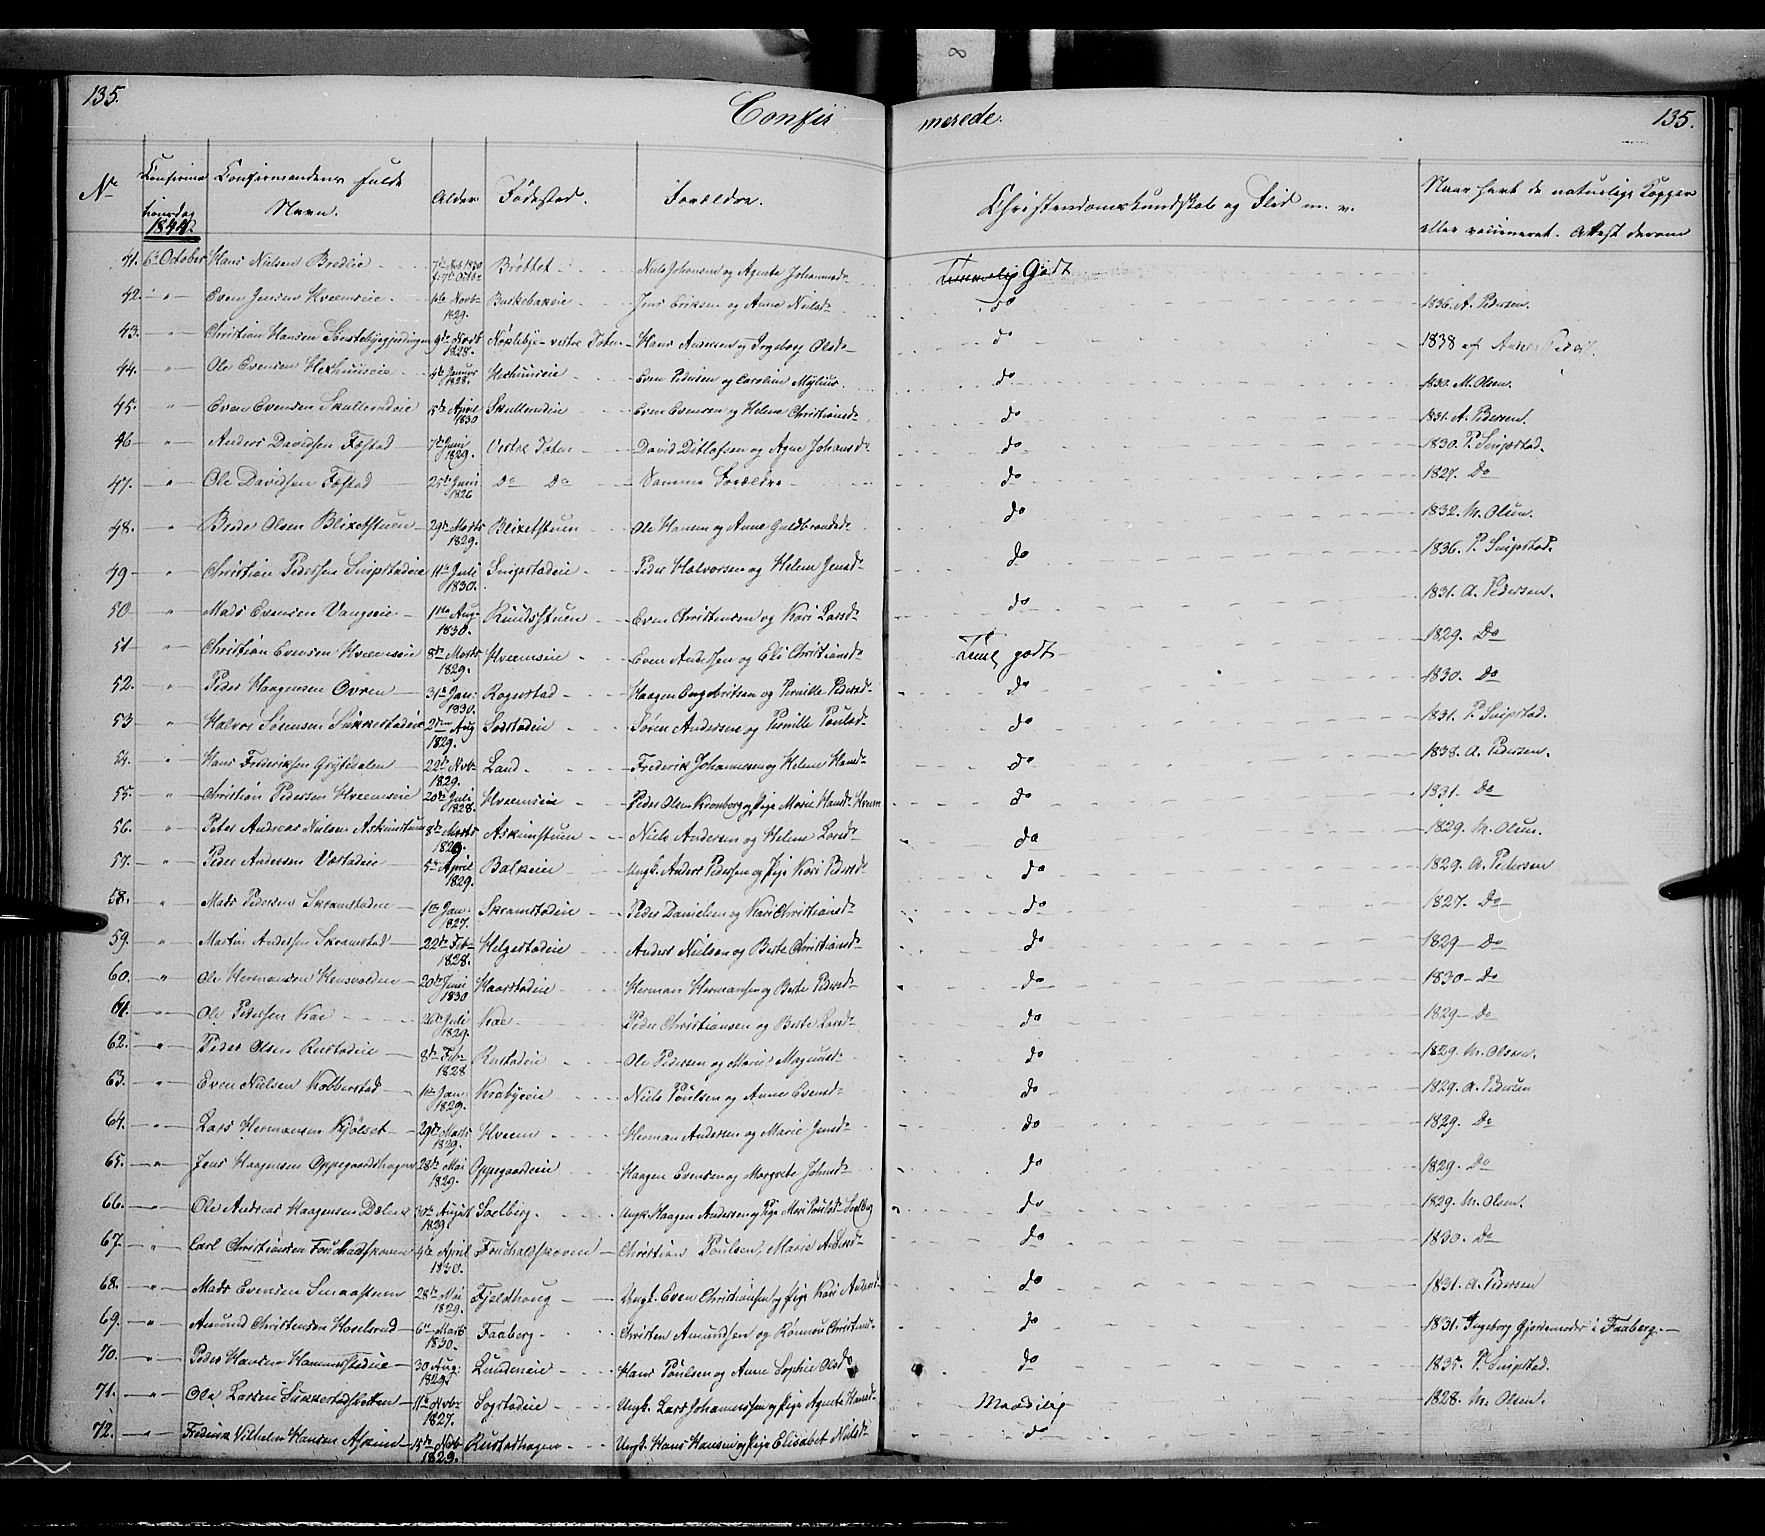 135. Confir merede. 135.
No Confirma Confirmandens fulde Alder Fødested. Forældre. Christendomskundskab og Flid m. v. Naar havt de naturlige Kopper
tionsdag Navn. eller vaccineret. Attest derom
1844.
41. 6te October Hans Nielsen 7de 1830 Brøttet Niels Johansen og Agnete Johannesd. Temmelig Godt
42. " Even Jensen Hveemseie 1829. Jens Eriksen og Anne Nielsd. do 1836. A. Pedersen.
43. " Christian Hansen 9de 1828. vestre Toten Hans og Ingeborg Olsd. do 1838 af
44. " Ole Evensen 4de Januar 1828. Even Pedersen og Caroline Mylius. do 1830. M. Olsen.
45. " Even Evensen Skullerudeie 5te April 1830 Skullerudeie Even Evensen og Helene Christiansd. do 1831. A. Pedersen.
46 " Anders Davidsen Fæstad 7de Juni 1829. Vestre Toten David Ditlofsen og Agne Johansd. do 1830. P. Snipstad.
47. " Ole Davidsen Fæstad 25de Juni 1826 Do Do Samme Forældre do 1827. Do
48. " Brede Olsen Blixetstuen 29de Marts 1829. Blixetstuen Ole Hansen og Anne Guldbrandsd. do 1832. M. Olsen.
49 " Christian Pedersen Snipstadeie 11te Juli 1830. Snipstadeie Peder Halvorsen og Helene Jensd. do 1836. P. Snipstad.
50 " Mads Evensen 11te Aug 1830. Even Christensen og Kari Larsd. do 1831. A. Pedersen.
51 " Christian Evensen Hveemseie 8de Marts 1829. Hveemseie Even Andersen og Eli Christiansd. Teml godt 1829. Do
52. " Peder Haagensen Ovren 31te Jan: 1830. Rognstad Haagen Engebretsen og Pernille Pedersd. do 1830. Do
53 " Halvor Sørensen Sukkestadeie Aug 1829. Søren Andersen og Pernille Poulsd. do 1831. P. Snipstad.
54. " Hans Frederiksen Grytedalen 22de Nvb. 1829. Land Frederik Johannesen og Helene Hansd. do 1838. A. Pedersen.
55. " Christian Pedersen Hveemseie 20de Juli 1828. Hveemseie Peder Olsen Kronborg og Pige Marie Hansd. Hveem do 1831. Do
56. " Peter Andreas Nielsen Askimstuen 8de Marts 1829. Askimstuen Niels Andersen og Helene Larsd. do 1829. M. Olsen.
57. " Peder Andersen 5te April 1829. Balkeeie Ungk. Anders Pedersen og Pige Kari Pedersd. do 1829. A. Pedersen
58. " Mads Pedersen Skramstadeie 1ste Jan: 1827. Skramstadeie Peder Danielsen og Kari Christiansd. do 1827. Do
59. " Martin Andersen Skramstad 22de Feb. 1828. Helgestadeie Anders Nielsen og Berte Christiansd. do 1829 Do
60. " Ole Hermansen 20de Juni 1830 Haarstadeie Herman Hermansen og Berte Pedersd. do 1830 Do
61. " Ole Pedersen Kae 26de Juli 1829. Kae Peder Christiansen og Berte Larsd. do 1829 Do
62. " Peder Olsen Rustadeie 8de Feb. 1828 Rustadeie Ole Pedersen og Marie Magnusd. do 1829. M. Olsen.
63. " Even Nielsen Kobberstad 1ste Jan: 1829. Krabyeie Niels Poulsen og Anne Evensd. do 1829. A. Pedersen
64. " Lars Hermansen Kjølset 29de Marts 1829. Hveem Herman Andersen og Marie Jensd. do 1829. Do
65. " Jens Haagensen Oppegaardshagen 28de Mai 1829. Oppegaardeie Haagen Evensen og Margrete Johnsd. do 1829. Do
66. " Ole Andreas Haagensen Dalen 30te August 1829. Soelberg Ungk. Haagen Andersen og Pige Mari Poulsd. Soelberg do 1829. M. Olsen.
67. " Carl Christiansen 4de April 1830. Christian Poulsen, Marie Andersd. do 1830. Do
68. " Mads Evensen Smaastuen 28de Mai 1829. Fjeldhaug Ungk. Even Christiansen og Pige Kari Andersd. do 1831. A. Pedersen
69. " Amund Christensen Haslerud 6te Marts 1830. Faaberg Christen Amundsen og Rønnou Christensd. do 1831. Ingeborg Gjordemoder i Faaberg.
70. " Peder Hansen Hammerstadeie 30 Aug: 1829. Lundeneie Hans Poulsen og Anne Sophie Olsd. do 1835. P. Snipstad.
71. " Ole Larsen 11te Nvb. 1827. Sogstadeie Ungk. Lars Johannesen og Pige Agnete Hansd. Maadelig 1828. M. Olsen.
72. " Frederik Vilhelm Hansen Askim 15de Nvb. 1829. Rustadhagen Ungk. Hans Hansen og Pige Elisabet Nielsd. do